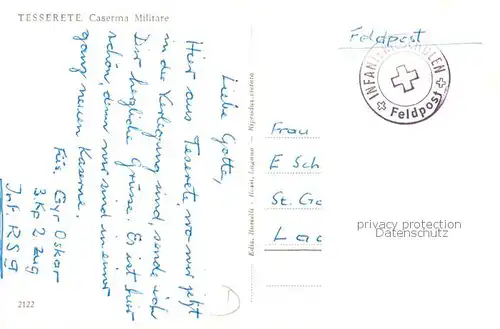 TESSERETE. Caserma Militare
Liebe Gotte,
Hier aus Teserete, wo wir jetzt
in der Verlegung sind, sende ich
Dir herzliche Grüsse. Es ist hier
schön, denn wir sind in einer
ganz neuen Kaserne.
Füs. Gyr Oskar
3. Kp 2 Zug
Inf. RS 9
2122
Feldpost
INFANTERIESCHULEN
Feldpost
Frau
E Sch
St. Ga
Lac
privacy protection
Datenschutz